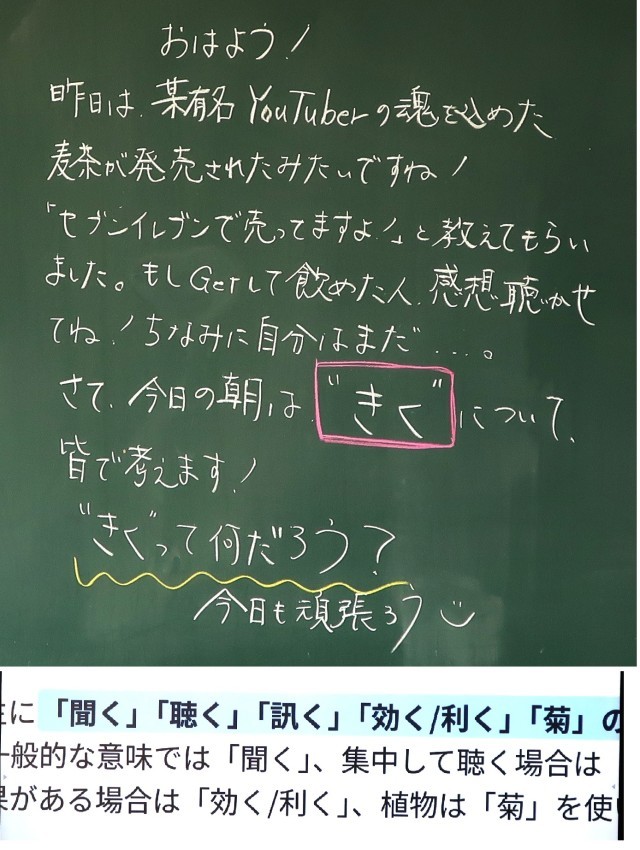 おはよう!
昨日は、某有名YouTuberの魂を込めた
麦茶が発売されたみたいですね!
「セブンイレブンで売ってますよ!」と教えてもらい
ました。もしGetして飲めた人、感想聴かせ
てね!ちなみに自分はまだ....。
さて、今日の朝は、"きく"について、
皆で考えます!
"きく"って何だろう?
今日も頑張ろう
に「聞く」「聴く」「訊く」「効く/利く」「菊」の
一般的な意味では「聞く」、集中して聴く場合は
がある場合は「効く/利く」、植物は「菊」を使い